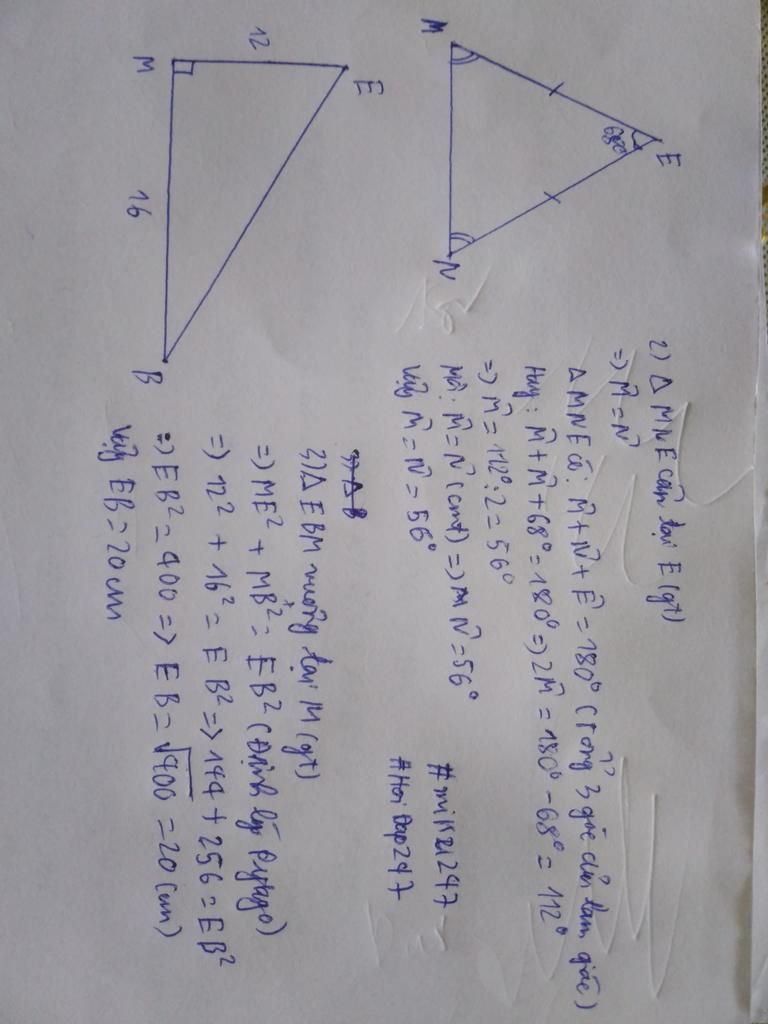 M
E
N
68°
M
12
E
16
B
2) Δ MNE cân tại E (gt)
=) M̂ = N̂
Δ MNE có: M̂ + N̂ + Ê = 180° (Tổng 3 góc của tam giác)
Hay: M̂ + M̂ + 68° = 180° =) 2M̂ = 180° - 68° = 112°
=) M̂ = 112° : 2 = 56°
Mà: M̂ = N̂ (cmt) =) N̂ = 56°
Vậy M̂ = N̂ = 56°
#mikei247
#HoiDap247
3) Δ B
3) Δ EBM vuông tại M (gt)
=) ME² + MB² = EB² (Định lý Pytago)
=) 12² + 16² = EB² =) 144 + 256 = EB²
=) EB² = 400 =) EB = √400 = 20 (cm)
Vậy EB = 20 cm